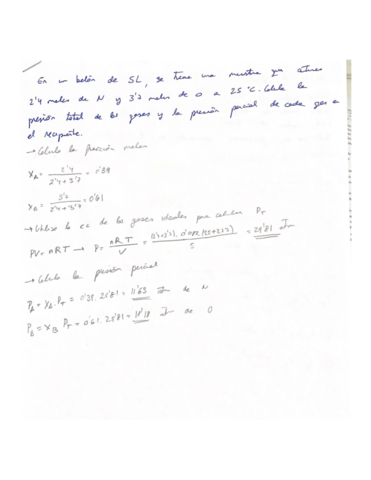 En un balón de 5L, se tiene una muestra que contiene
2'4 moles de N y 3'7 moles de O a 25 °C. Calcula la
presión total de los gases y la presión parcial de cada gas en
el recipiente.
→ Calculo la fracción molar
X_A = 2'4 / 2'4 + 3'7 = 0'39
X_B = 3'7 / 2'4 + 3'7 = 0'61
→ Utilizo la ec de los gases ideales para calcular P_T
PV = nRT → P = nRT / V = = 29'81
→ Calculo la presión parcial
P_A = X_A · P_T = 0'39 · 29'81 = 11'63 de N
P_B = X_B P_T = 0'61 · 29'81 = 18'18 de O